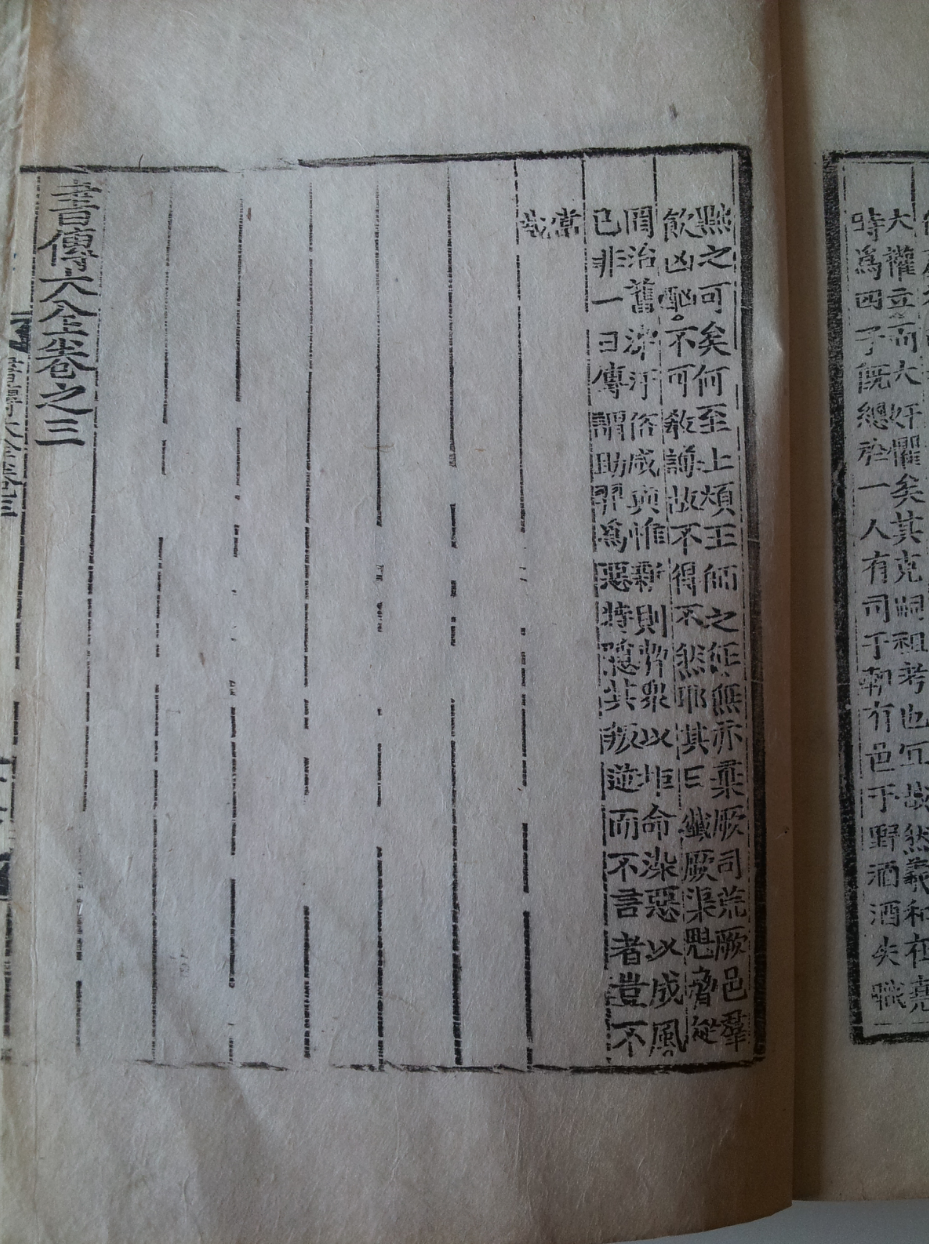 大權立而大奸懼矣其克嗣祖考也冝哉然羲和在堯
時爲四子旣總於一人有司于朝有邑于野酒酒失職
黜之可矣何至上煩王師之征無亦棄厥司荒厥邑羣
飮凶酗不可敎誨故不得不然耶其曰殲厥渠魁脅從
罔治舊染汙俗咸與惟新則將衆以拒命染惡以成風
已非一日傳謂助羿爲惡特隱其叛逆而不言者豈不
當
哉
書傳大全卷之三
書傳大全卷三